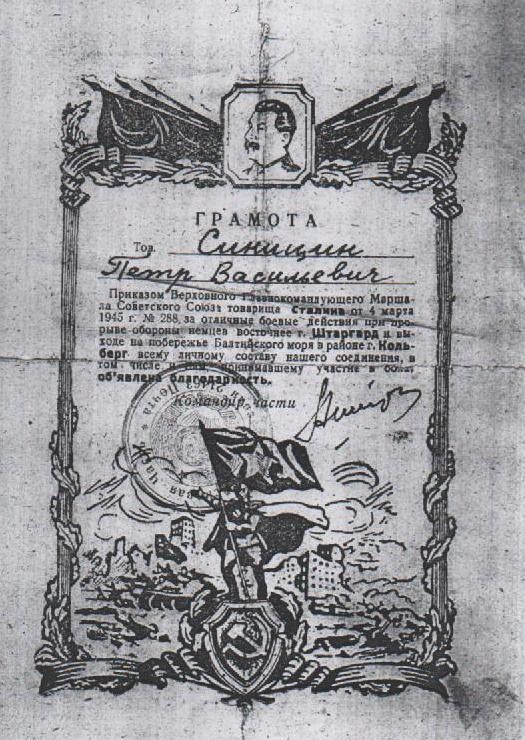 ГРАМОТА
Тов. Синицин
Пётр Васильевич
Приказом Верховного Главнокомандующего Марша-
ла Советского Союза товарища Сталина от 4 марта
1945 г. № 288, за отличные боевые действия при про-
рыве обороны немцев восточнее г. Штаргард и вы-
ходе на побережье Балтийского моря в районе г. Коль-
берг всему личному составу нашего соединения, в
том числе и принимавшему участие в боях,
об'явлена благодарность.
Командир части